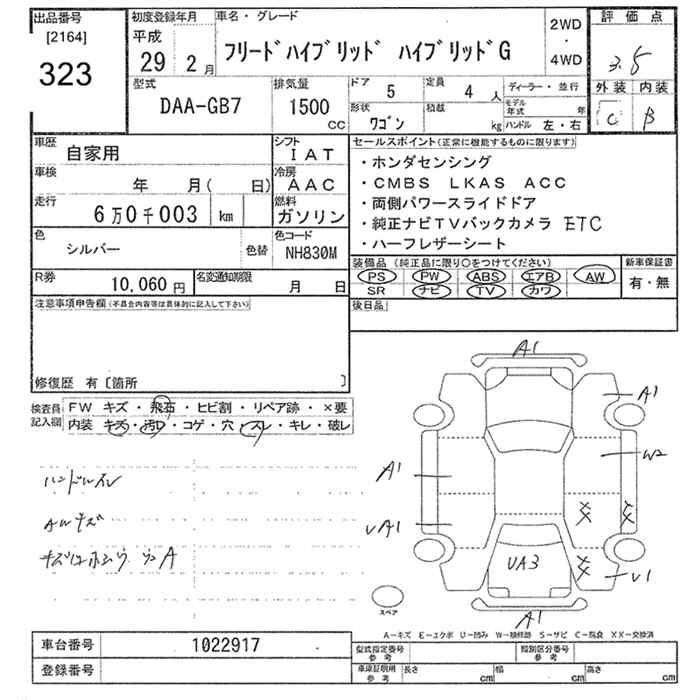 出品番号
[2164]
323
初度登録年月
平成
29 2 月
車名・グレード
フリードハイブリッド ハイブリッドG
2WD
・
4WD
評価点
3.5
外装 内装
C B
型式
DAA-GB7
排気量
1500
CC
ドア
5
定員
4 人
形状
ワゴン
積載
kg
ディーラー・並行
モデル年式 年
ハンドル 左・右
車歴
自家用
シフト
IAT
車検
年 月( 日)
冷房
AAC
走行
6万0千003 km
燃料
ガソリン
色
シルバー
色替
色コード
NH830M
R券
10,060 円
名変通知期限
月 日
セールスポイント(正常に機能するものに限ります)
・ホンダセンシング
・CMBS LKAS ACC
・両側パワースライドドア
・純正ナビTVバックカメラ ETC
・ハーフレザーシート
装備品 (純正品に限り○をつけてください)
PS PW ABS エアB AW
SR ナビ TV カワ
新車保証書
有・無
後日品
注意事項申告欄(不具合内容等は具体的に記入して下さい)
修復歴 有〔箇所 〕
検査員
記入欄
FW キズ・飛石・ヒビ割・リペア跡・×要
内装 キズ・汚レ・コゲ・穴・スレ・キレ・破レ
ハンドルスレ
AWキズ
A1
A1
A1
W2
UA1
XX
XX
XX
UA3
U1
A1
スペア
A-キズ E-エクボ U-凹み W-補修跡 S-サビ C-腐食 XX-交換済
車台番号
1022917
登録番号
型式指定番号
参考
類別区分番号
参考
車庫証明用
参考
長さ cm
幅 cm
高さ cm